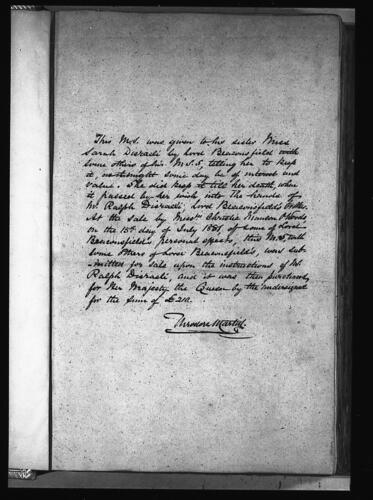 This M.S. was given to his sister Miss
Sarah Disraeli by Lord Beaconsfield with
some others of his M.S.S, telling her to keep
it, as it might some day be of interest and
value. She did keep it till her death, when
it passed by her wish into the hands of
Mr Ralph Disraeli, Lord Beaconsfield's brother.
At the Sale by Messrs Christie Manson & Woods
on the 15th day of July 1881, of some of Lord
Beaconsfield's personal effects, this M.S, with
some others of Lord Beaconsfield's, were sub-
-mitted for Sale upon the instructions of Mr
Ralph Disraeli, and it was then purchased
for Her Majesty the Queen by the undersigned
for the Sum of £210.
Theodore Martin